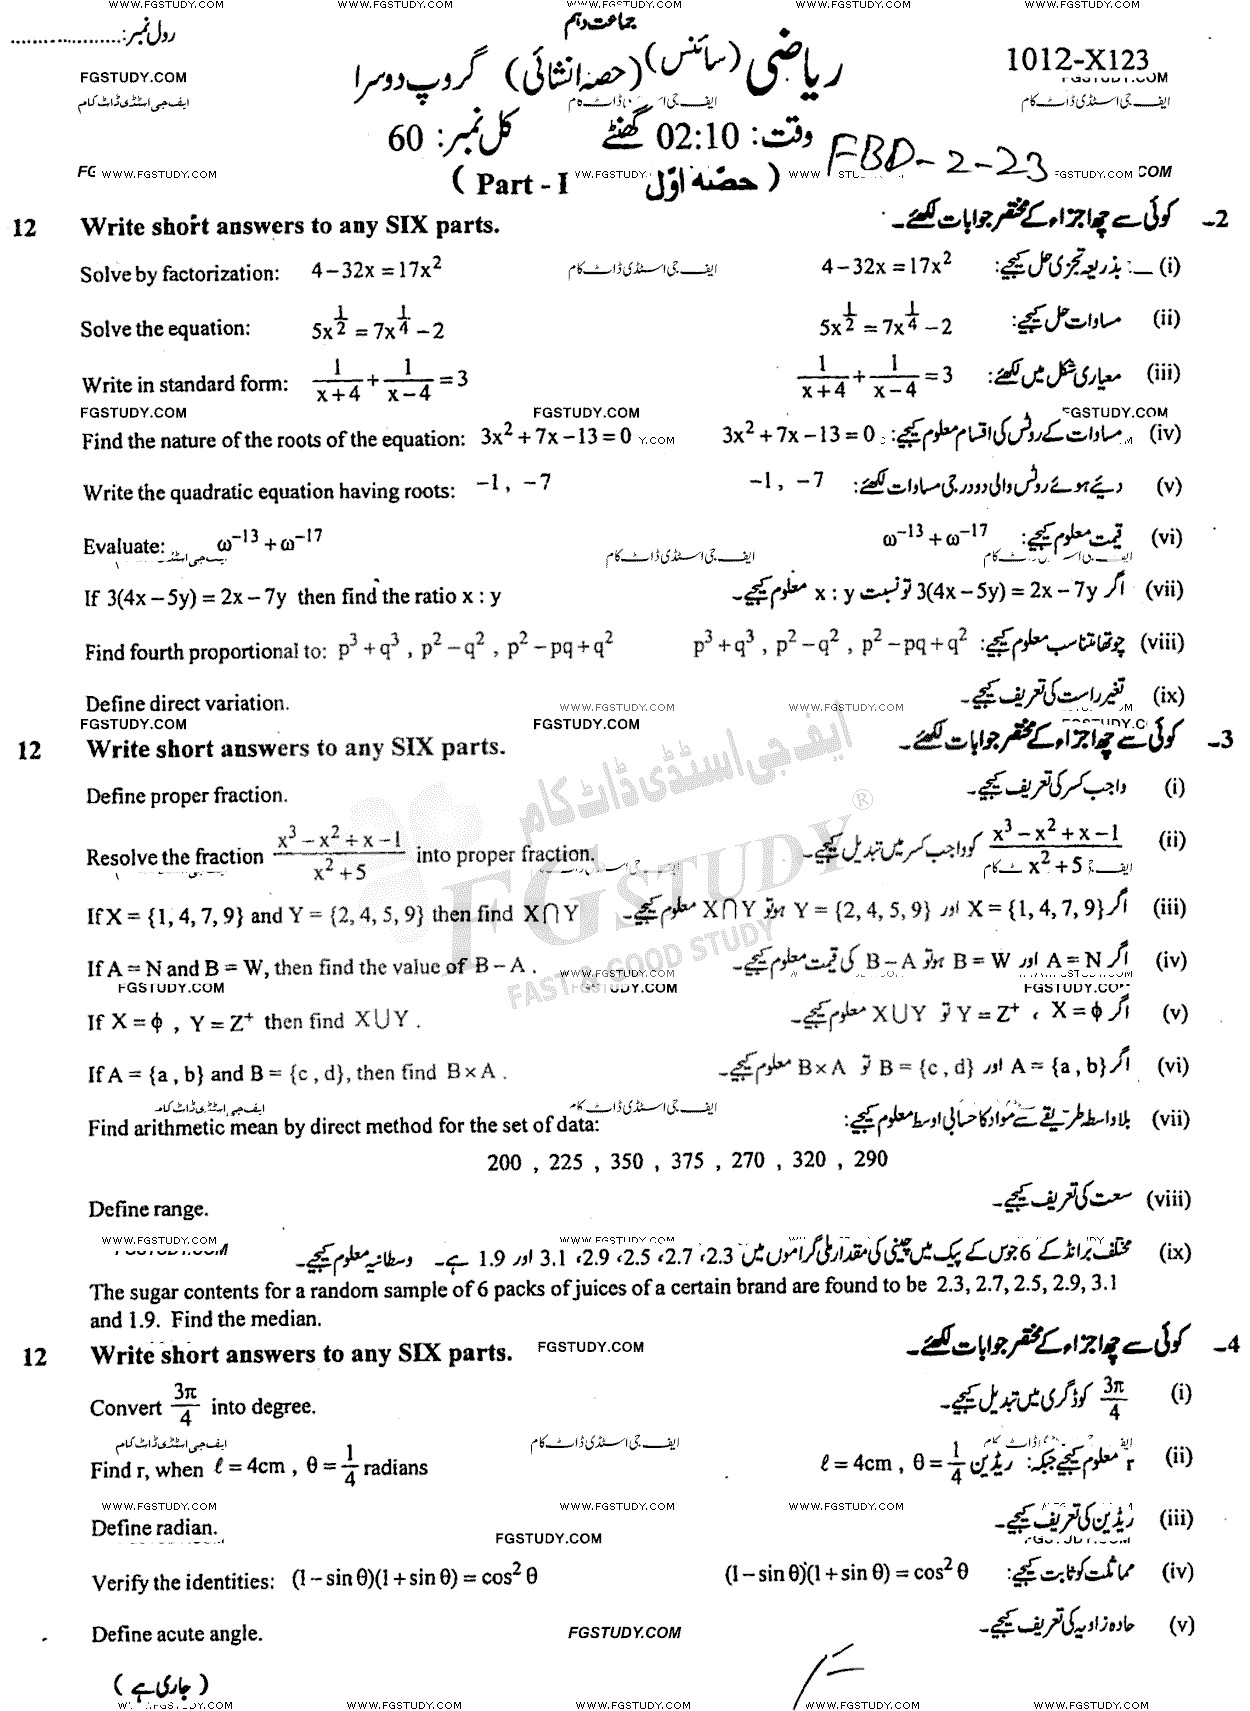 WWW.FGSTUDY.COM WWW.FGSTUDY.COM WWW.FGSTUDY.COM WWW.FGSTUDY.COM WWW.FGSTUDY.COM
جماعت دہم
رول نمبر:....................
1012-X123
ریاضی (سائنس) (حصہ انشائی) گروپ دوسرا
FGSTUDY.COM FGSTUDY.COM
ایف جی اسٹڈی ڈاٹ کام ایف جی اسٹڈی ڈاٹ کام ایف جی اسٹڈی ڈاٹ کام
وقت: 02:10 گھنٹے کل نمبر: 60
FBD-2-23
WWW.FGSTUDY.COM
( Part - I حصّہ اوّل )
12 Write short answers to any SIX parts. کوئی سے چھ اجزاء کے مختصر جوابات لکھئے۔ -2
Solve by factorization: 4 – 32x = 17x² ایف جی اسٹڈی ڈاٹ کام 4 – 32x = 17x² بذریعہ تجزی حل کیجیے: (i)
Solve the equation: 5x^{1/2} = 7x^{1/4} – 2 5x^{1/2} = 7x^{1/4} – 2 مساوات حل کیجیے: (ii)
Write in standard form: 1/(x+4) + 1/(x–4) = 3 1/(x+4) + 1/(x–4) = 3 معیاری شکل میں لکھئے: (iii)
FGSTUDY.COM FGSTUDY.COM FGSTUDY.COM
Find the nature of the roots of the equation: 3x² + 7x – 13 = 0 3x² + 7x – 13 = 0 مساوات کے روٹس کی اقسام معلوم کیجیے: (iv)
Write the quadratic equation having roots: –1 , –7 –1 , –7 دیئے ہوئے روٹس والی دو درجی مساوات لکھئے: (v)
Evaluate: ω⁻¹³ + ω⁻¹⁷ ω⁻¹³ + ω⁻¹⁷ قیمت معلوم کیجیے: (vi)
ایف جی اسٹڈی ڈاٹ کام
If 3(4x – 5y) = 2x – 7y then find the ratio x : y اگر 3(4x – 5y) = 2x – 7y تو نسبت x : y معلوم کیجیے۔ (vii)
Find fourth proportional to: p³ + q³ , p² – q² , p² – pq + q² p³ + q³ , p² – q² , p² – pq + q² چوتھا تناسب معلوم کیجیے: (viii)
Define direct variation. WWW.FGSTUDY.COM WWW.FGSTUDY.COM تغیر راست کی تعریف کیجیے۔ (ix)
FGSTUDY.COM FGSTUDY.COM
12 Write short answers to any SIX parts. کوئی سے چھ اجزاء کے مختصر جوابات لکھئے۔ -3
ایف جی اسٹڈی ڈاٹ کام
FGSTUDY ®
FAST & GOOD STUDY
Define proper fraction. واجب کسر کی تعریف کیجیے۔ (i)
Resolve the fraction (x³ – x² + x – 1)/(x² + 5) into proper fraction. (x³ – x² + x – 1)/(x² + 5) کو واجب کسر میں تبدیل کیجیے۔ (ii)
If X = {1, 4, 7, 9} and Y = {2, 4, 5, 9} then find X∩Y اگر X = {1, 4, 7, 9} اور Y = {2, 4, 5, 9} ہو تو X∩Y معلوم کیجیے۔ (iii)
If A = N and B = W, then find the value of B – A . اگر A = N اور B = W ہو تو B – A کی قیمت معلوم کیجیے۔ (iv)
FGSTUDY.COM WWW.FGSTUDY.COM FGSTUDY.COM FGSTUDY.COM
If X = ϕ , Y = Z⁺ then find X∪Y . اگر X = ϕ ، Y = Z⁺ تو X∪Y معلوم کیجیے۔ (v)
If A = {a , b} and B = {c , d}, then find B × A . اگر A = {a , b} اور B = {c , d} تو B × A معلوم کیجیے۔ (vi)
ایف جی اسٹڈی ڈاٹ کام ایف جی اسٹڈی ڈاٹ کام
Find arithmetic mean by direct method for the set of data: بلاواسطہ طریقے سے مواد کا حسابی اوسط معلوم کیجیے: (vii)
200 , 225 , 350 , 375 , 270 , 320 , 290
Define range. سعت کی تعریف کیجیے۔ (viii)
WWW.FGSTUDY.COM WWW.FGSTUDY.COM
مختلف برانڈ کے 6 جوس کے پیک میں چینی کی مقدار ملی گراموں میں 2.3، 2.7، 2.5، 2.9، 3.1 اور 1.9 ہے۔ وسطانیہ معلوم کیجیے۔ (ix)
The sugar contents for a random sample of 6 packs of juices of a certain brand are found to be 2.3, 2.7, 2.5, 2.9, 3.1
and 1.9. Find the median.
12 Write short answers to any SIX parts. FGSTUDY.COM کوئی سے چھ اجزاء کے مختصر جوابات لکھئے۔ -4
Convert 3π/4 into degree. 3π/4 کو ڈگری میں تبدیل کیجیے۔ (i)
ایف جی اسٹڈی ڈاٹ کام ایف جی اسٹڈی ڈاٹ کام
Find r, when ℓ = 4cm , θ = 1/4 radians ℓ = 4cm , θ = 1/4 ریڈین r معلوم کیجیے جبکہ: (ii)
WWW.FGSTUDY.COM WWW.FGSTUDY.COM WWW.FGSTUDY.COM
Define radian. FGSTUDY.COM ریڈین کی تعریف کیجیے۔ (iii)
Verify the identities: (1 – sin θ)(1 + sin θ) = cos² θ (1 – sin θ)(1 + sin θ) = cos² θ مماثلت کو ثابت کیجیے: (iv)
Define acute angle. FGSTUDY.COM حادہ زاویہ کی تعریف کیجیے۔ (v)
( جاری ہے )
WWW.FGSTUDY.COM WWW.FGSTUDY.COM WWW.FGSTUDY.COM WWW.FGSTUDY.COM